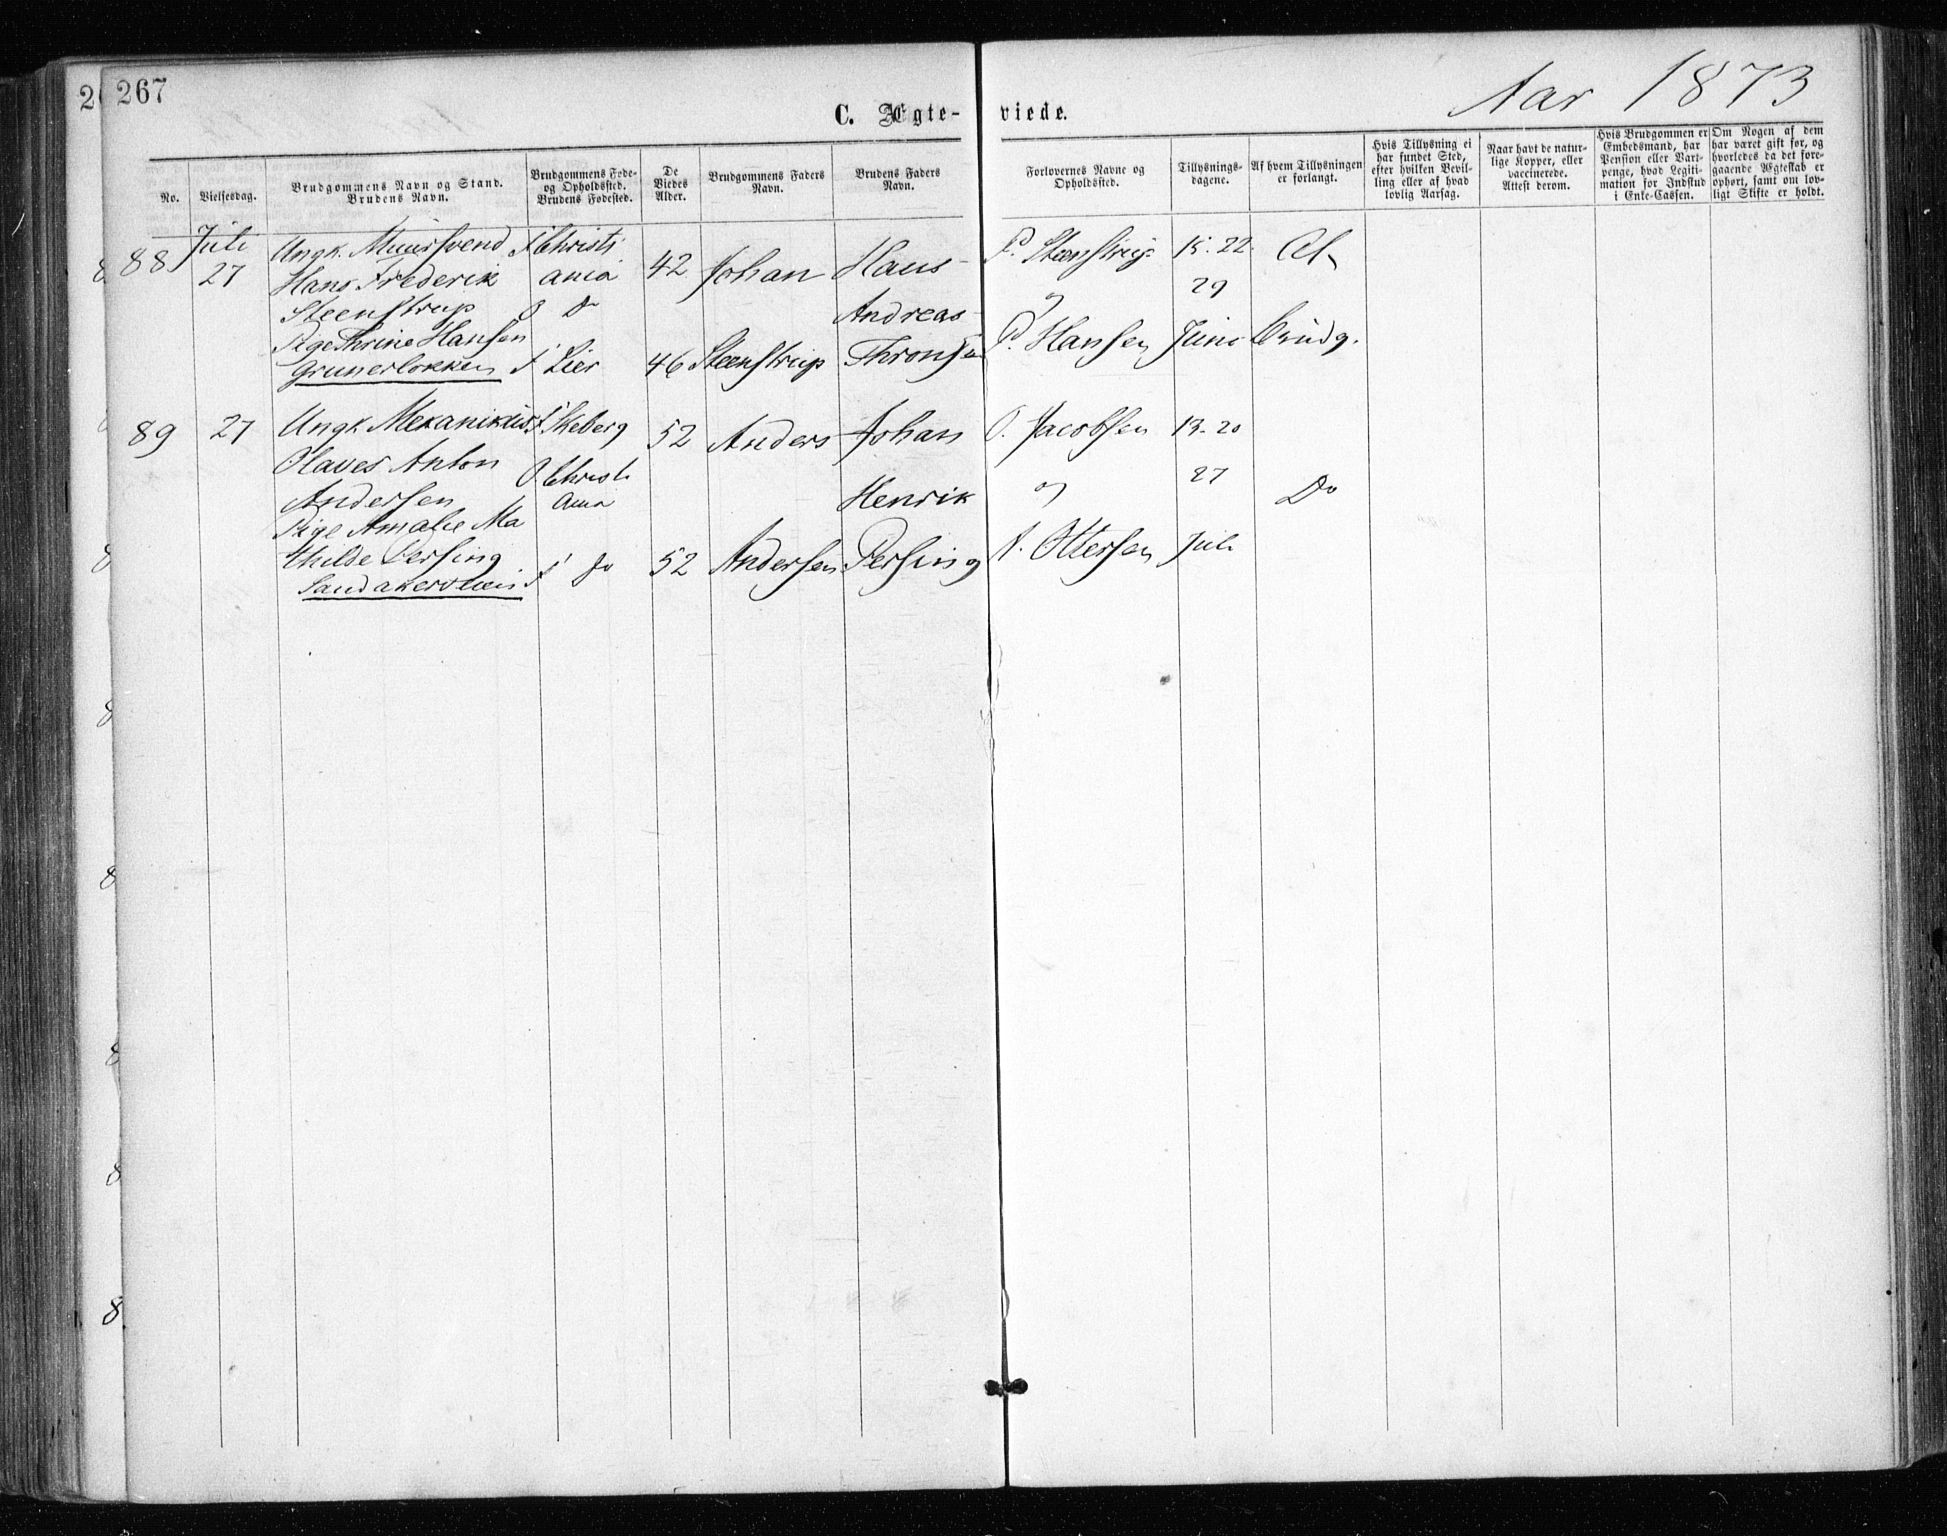 267
C. Ægte-
viede.
Aar 1873
No.
Vielsesdag.
Brudgommens Navn og Stand.
Brudens Navn.
Brudgommens Føde-
og Opholdssted.
Brudens Fødested.
De
Viedes
Alder.
Brudgommens Faders
Navn.
Brudens Faders
Navn.
Forlovernes Navne og
Opholdssted.
Tillysnings-
dagene.
Af hvem Tillysningen
er forlangt.
Hvis Tillysning ei
har fundet Sted,
efter hvilken Bevil-
ling eller af hvad
lovlig Aarsag.
Naar havt de natur-
lige Kopper, eller
vaccinerede.
Attest derom.
Hvis Brudgommen er
Embedsmand, har
Pension eller Vart-
penge, hvad Legiti-
mation for Indskud
i Enke-Cassen.
Om Nogen af dem
har været gift før, og
hvorledes da det fore-
gaaende Ægteskab er
ophørt, samt om lov-
ligt Skifte er holdt.
88 Juli 27
Ungk. Muursvend
Hans Frederik
Steenstrup
Pige Thrine Hansen
Grunerlokken
F Christi
ania
O Do
F Lier
42
46
Johan
Steenstrup
Hans
Andreas
Thronsen
P. Steenstrup
og
P. Hansen
15. 22.
29
Juni
Af
Brudg.
89 27
Ungk Mekanikus
Olaves Anton
Andersen
Pige Amalie Ma
thilde Persing
Sandakerveien
F Skeberg
O Christi
ania
F Do
52
52
Anders
Andersen
Johan
Henrik
Persing
O. Jacobsen
og
A. Ottersen
13. 20
27
Juli
Do